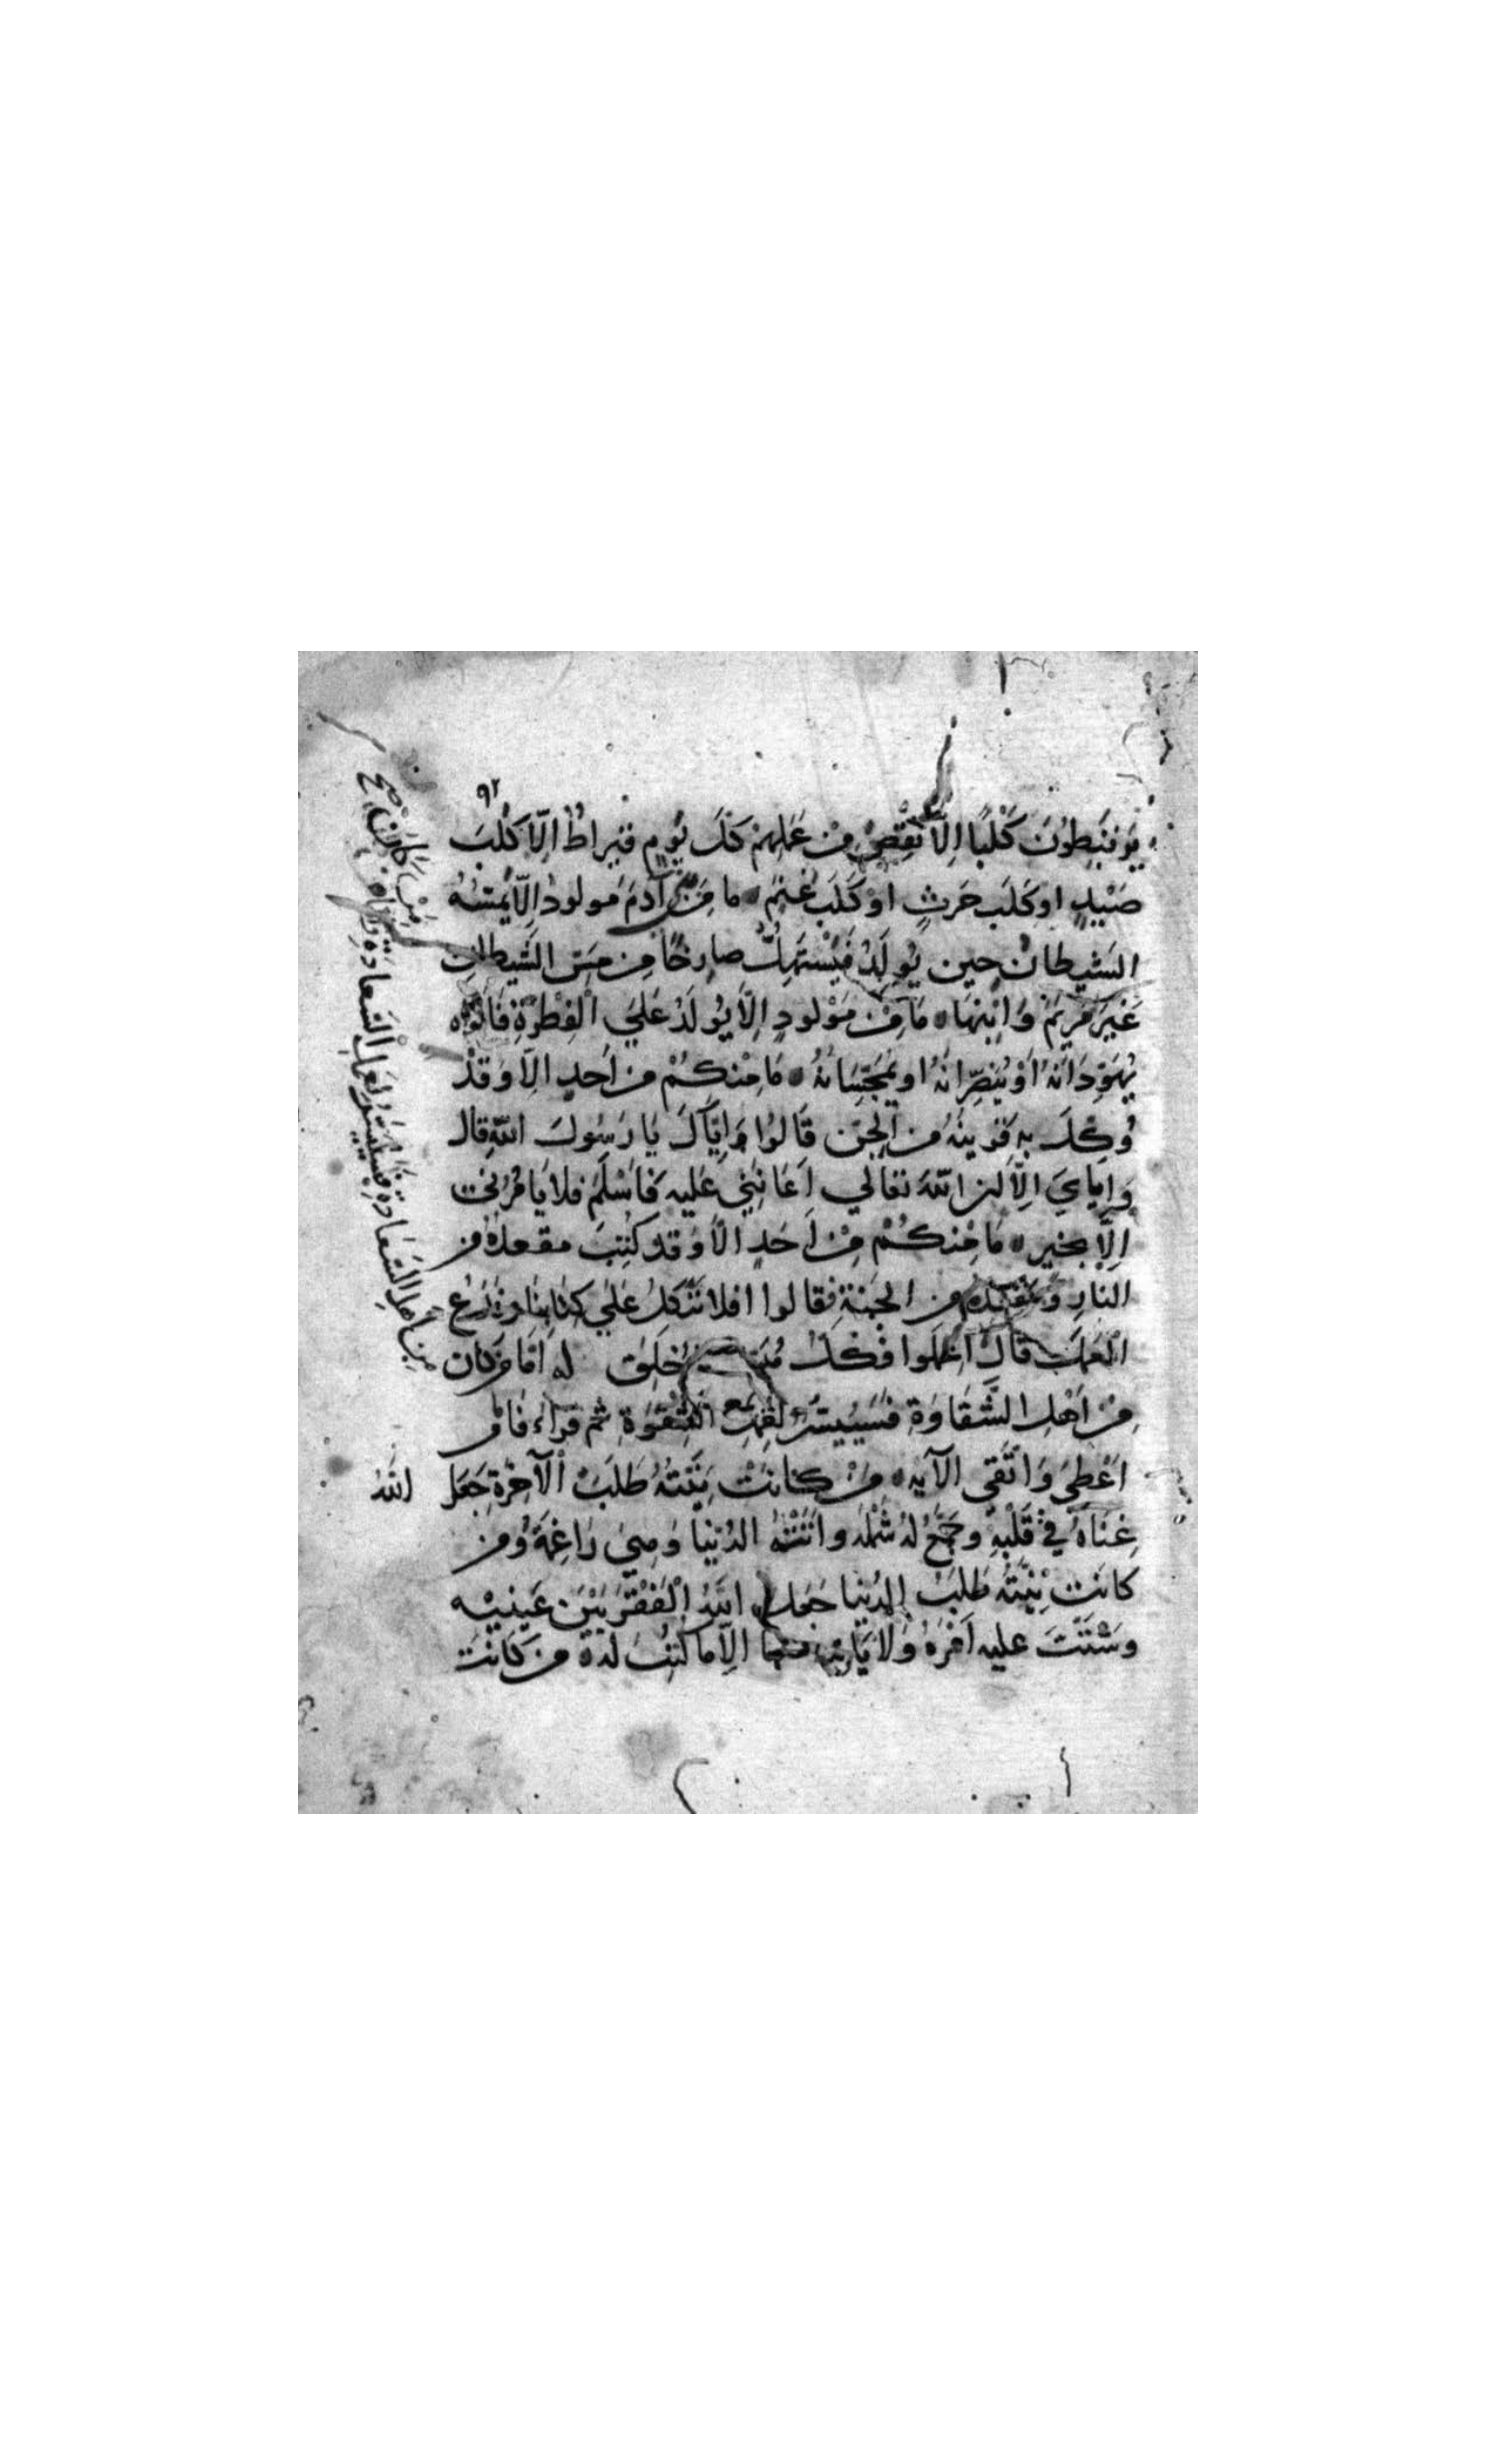 ٩٢
يَرْتَبِطُونَ كَلْبًا اِلَّا نَقَصَ مِنْ عَمَلِهِمْ كُلَّ يَوْمٍ قيراطٌ اِلَّا كَلْبَ
صَيْدٍ او كَلبَ حَرثٍ اوْ كَلَبَ غنمٍ ما مِنْ بني آدمَ مَولودٌ اِلّا يمَسّهُ
الشيطانُ حين يُولَدُ فَيَسْتَهِلُّ صارخًا من مسّ الشيطانِ
غَيرَ مَريَمَ وَابْنِهَا مَا مِنْ مَوْلودٍ اِلَّا يُولَدُ عَلَى الْفِطْرَةِ فَابَوَاه
يُهَوِّدَانَهُ اَوْ يُنَصِّرَانَهُ او يمَجِّسَانهُ مَا مِنكُمْ من اَحدٍ الّا وَقَدْ
وُكِّلَ بهِ قَرينُهُ من الجنّ قَالُوا وَاِيَّاكَ يَا رَسُولَ اللهِ قال
وَاِيايَ اِلَّا ان اللهَ تعَالي اَعَانَنِي عَليهِ فَاَسْلَمَ فلا يَامُرُني
اِلَّا بخيرٍ مَا مِنكُمْ مِنْ اَحَدٍ الّا وَقد كُتِبَ مقعدُهُ من
النارِ وَمَقعَدُهُ من الجنةِ فقالوا افلا نَتَّكِلُ عَلي كِتابِنا وندَعُ
الْعَمَلَ قالَ اعْمَلوا فكُلٌّ مُيَسَّرٌ لِمَا خُلِقَ له اَمّا مَن كان
مِنْ اَهْلِ الشَّقَاوَةِ فَسَيُيَسَّرُ لِعَمَلِ الشِّقْوَةِ ثم قراَ فَامّا من
اَعْطي وَاتَّقَى الآيه مَنْ كانتْ نِيَّتُهُ طَلَبَ الْآخِرَةِ جَعَلَ اللهُ
غِنَاهُ في قَلْبِهِ وجَمَعَ لهُ شَمْلَهُ وَاَتَتْهُ الدُنيا وَهِيَ رَاغِمَةٌ وَمن
كانَت نِيَّتُهُ طَلَبَ الدُنيا جَعَلَ اللهُ الْفَقْرَ بَيْنَ عَينيْه
وَشَتَّتَ عليهِ اَمْرَهُ وَلَا يَاتِيهِ منها الّا ما كُتِبَ لَهُ من كَانَتْ
مَنْ كَانَ مِن اَهلِ السَّعَادَةِ فَسَيُيَسَّرُ لِعَمَلِ السَّعَادَةِ صح